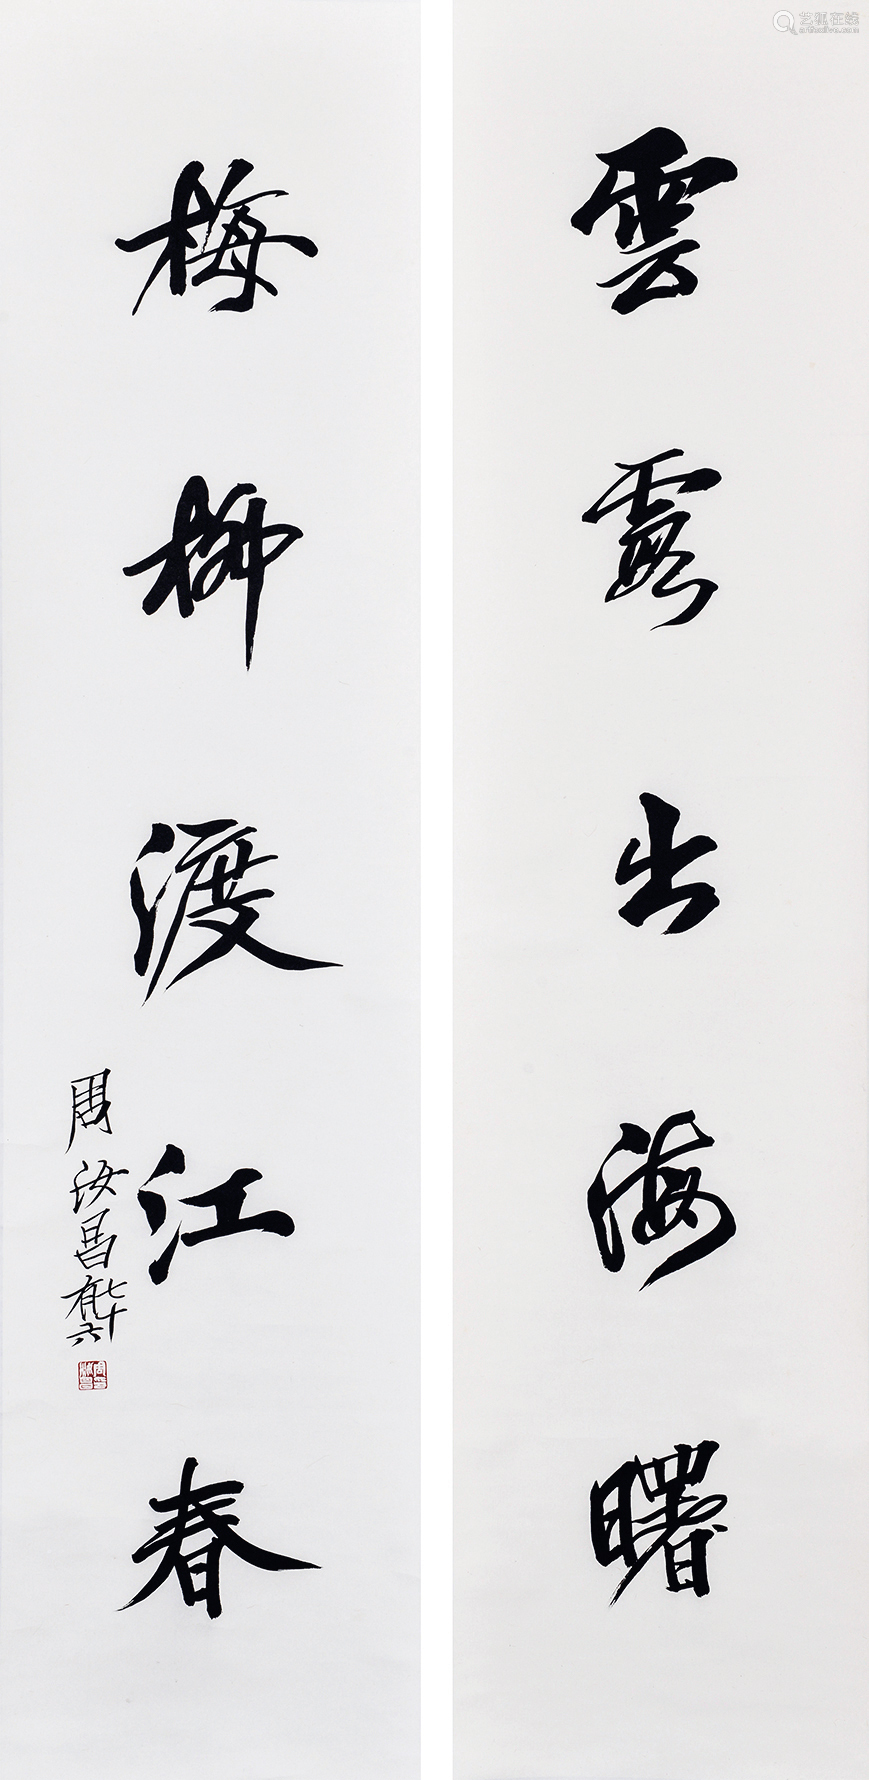 雲霞出海曙
梅柳渡江春
周汝昌七十有六
艺狐在线
artfoxlive.com